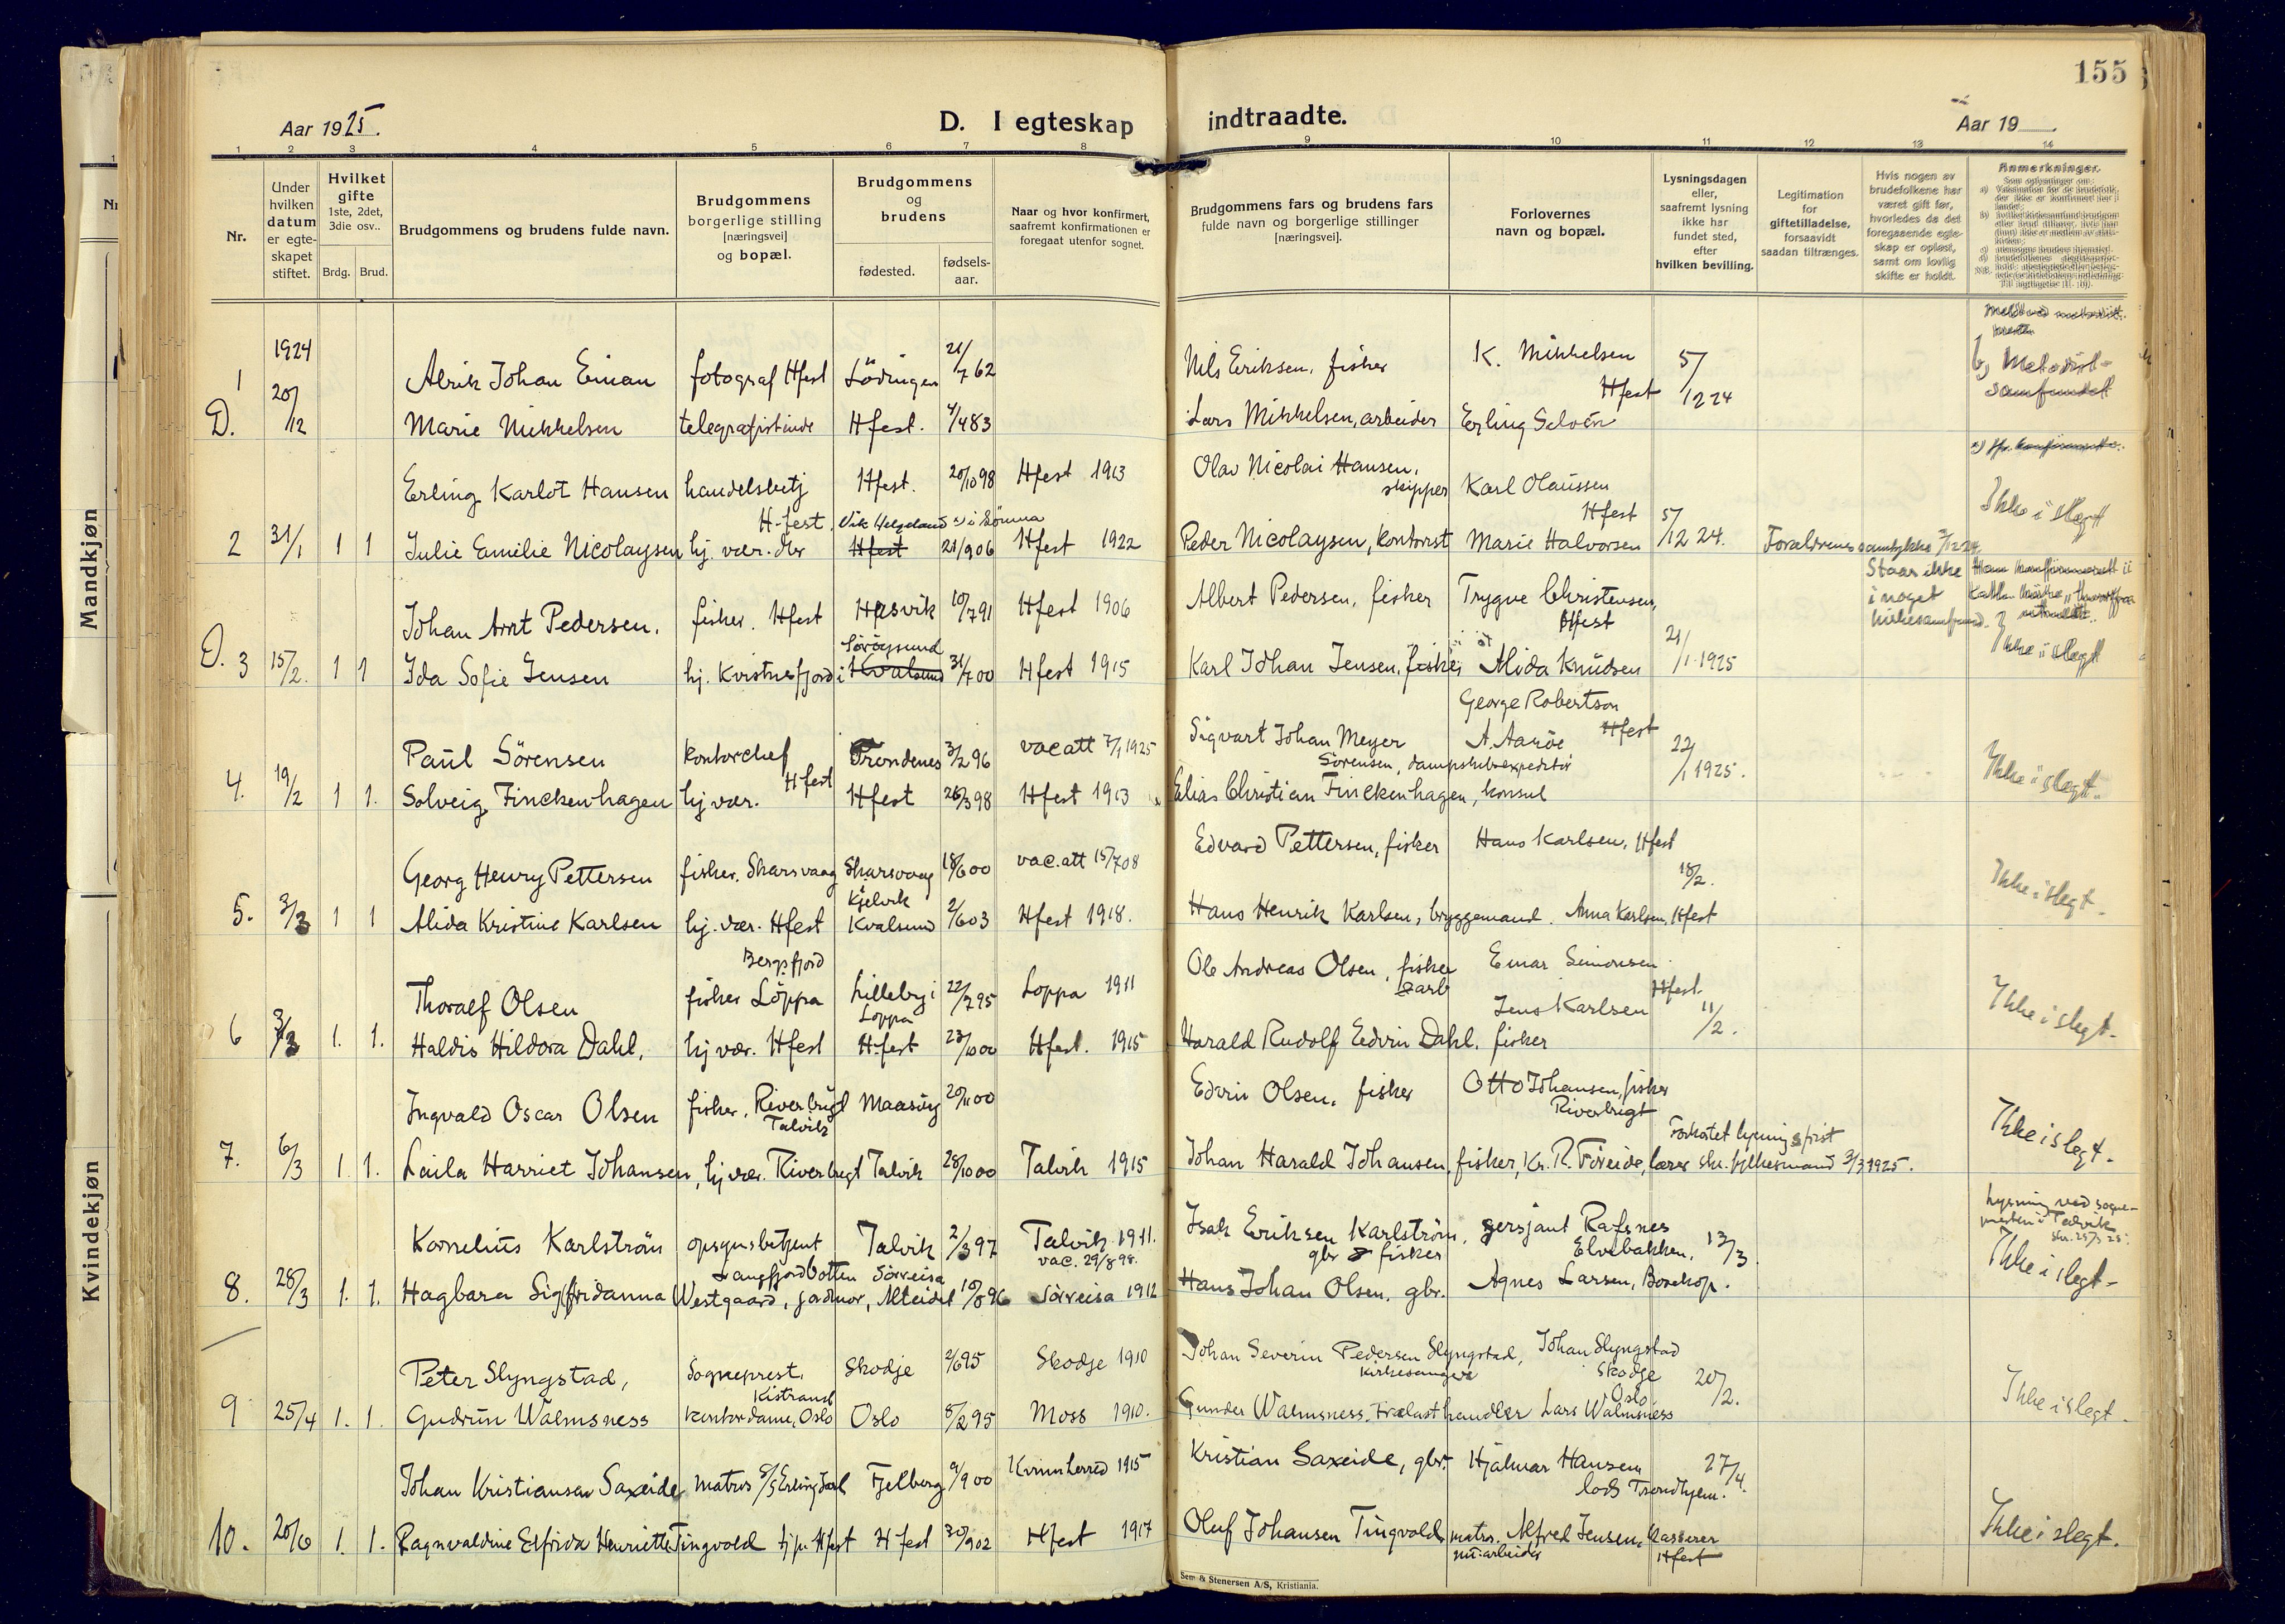 155
Aar 1925.
D. I egteskap
indtraadte.
Aar 19
1 2 3 4 5 6 7 8 9 10 11 12 13 14
Nr.
Under hvilken datum er egte-skapet stiftet.
Hvilket gifte 1ste, 2det, 3die osv..
Brdg. Brud.
Brudgommens og brudens fulde navn.
Brudgommens borgerlige stilling [næringsvei] og bopæl.
Brudgommens og brudens
fødested. fødsels-aar.
Naar og hvor konfirmert, saafremt konfirmationen er foregaat utenfor sognet.
Brudgommens fars og brudens fars fulde navn og borgerlige stillinger [næringsvei].
Forlovernes navn og bopæl.
Lysningsdagen eller, saafremt lysning ikke har fundet sted, efter hvilken bevilling.
Legitimation for giftetilladelse, forsaavidt saadan tiltrænges.
Hvis nogen av brudefolkene har været gift før, hvorledes da det foregaaende egte-skap er opløst, samt om lovlig skifte er holdt.
Anmerkninger.
Mandkjøn
Kvindekjøn
1924
1 Alrik Johan Einan fotograf Hfest Lödingen 21/7 62 Nils Eriksen, fisker K. Mikkelsen 5/12 24 b) Metodist-
D. 20/12 Hfest samfundet
Marie Mikkelsen telegrafistinde Hfest. 4/4 83 Lars Mikkelsen, arbeider Erling Selvén
Erling Karlot Hansen handelsbetj Hfest. 20/10 98 Hfest 1913 Olav Nicolai Hansen, skipper Karl Olaussen Ikke i slegt
H-fest. Vik Helgeland i Sömna Hfest
2 31/1 1 1 Julie Emilie Nicolaysen hj. vær. Hfest 21/9 06 Hfest 1922 Peder Nicolaysen, kontorist Marie Halvorsen 5/12 24. Foraldrenes samtykke 2/12 24.
Johan Arnt Pedersen. fisker. Hfest Hasvik 10/7 91 Hfest 1906 Albert Pedersen, fisker Trygve Christensen, Hfest Staar ikke i noget kirkesamfund.
Söröysund
D. 3 15/2. 1 1 Ida Sofie Jensen hj. Kvistnesfjord i Kvalsund 31/7 00 Hfest 1915 Karl Johan Jensen, fisker Alida Knudsen 21/1 1925 Ikke i slegt
George Robertson Hfest
Paul Sörensen kontorchef Hfest Trondenes 3/2 96 vac att 7/1 1925 Sigvart Johan Meyer Sörensen, dampskibsexpeditör A. Aaröe 22/1 1925. Ikke i slegt.
4. 19/2 1 1. Solveig Finckenhagen hj vær. Hfest 26/3 98 Hfest 1913 Elias Christian Finckenhagen, konsul
Georg Henry Pettersen fisker. Skarsvaag Skarsvaag Kjelvik 18/6 00 vac.att 15/7 08 Edvard Pettersen, fisker Hans Karlsen, Hfest 18/2. Ikke i slegt.
5. 3/3 1 1 Alida Kristine Karlsen hj. vær. Hfest Kvalsund 2/6 03 Hfest 1918. Hans Henrik Karlsen, bryggemand. Anna Karlsen, Hfest
Bergsfjord
Thoralf Olsen fisker Löppa Lillebugt i Loppa 22/7 95 Loppa 1911 Ole Andreas Olsen, fisker Einar Simonsen Hfest. Ikke i slegt.
6 3/3 1. 1. Haldis Hildora Dahl, hj vær. Hfest H-fest 23/10 00 Hfest. 1915 Harald Rudolf Edvin Dahl. fisker Jens Karlsen 11/2.
Ingvald Oscar Olsen fisker, Riverbugt Talvik Maasöy 20/11 00 Edvin Olsen, fisker Otto Johansen, fisker Riverbugt Ikke i slegt.
7. 6/3 1. 1. Laila Harriet Johansen, hj vær. Riverbugt Talvik 28/10 00 Talvik 1915 Johan Harald Johansen, fisker, Kr. R. Föreide, lærer Forkortet lysningsfrist skr. fylkesmand 3/3 1925.
Kornelius Karlström opsynsbetjent Langfjordbotten Talvik 2/3 97 Talvik 1911. vac. 29/8 98. Isak Eriksen Karlström, gbr & fisker sersjant Rafsnes Elvebakken, 13/3 Lysning ved sogne-presten i Talvik
8. 28/3 1. 1. Hagbara Sigfridanna Westgaard, jordmor, Alteidet Sörreisa 10/8 96 Sörreisa 1912 Hans Johan Olsen, gbr. Agnes Larsen, Bosekop. Ikke i slegt.
Peter Slyngstad, Sogneprest, Kistrand Skodje 2/6 95 Skodje 1910 Johan Severin Pedersen Slyngstad, kirkesanger Johan Slyngstad Skodje
9 25/4 1. 1. Gudrun Walmsness kontordame, Oslo Oslo 8/2 95 Moss 1910. Gunder Walmsness, Trælasthandler Lars Walmsness Oslo 20/2. Ikke i slegt.
Johan Kristiansen Saxeide matros S/S Erling Jarl Fjelberg 9/9 00 Kvinnherred 1915 Kristian Saxeide, gbr. Hjalmar Hansen lods Trondhjem. 27/4.
10. 20/6 1. 1. Ragnvaldine Elfrida Henriette Tingvold tj.p. Hfest Hfest 30/9 02 Hfest 1917 Oluf Johansen Tingvold matros. nu arbeider Alfred Jensen, kasserer Hfest Ikke i slegt.
Sem & Stenersen A/S, Kristiania.